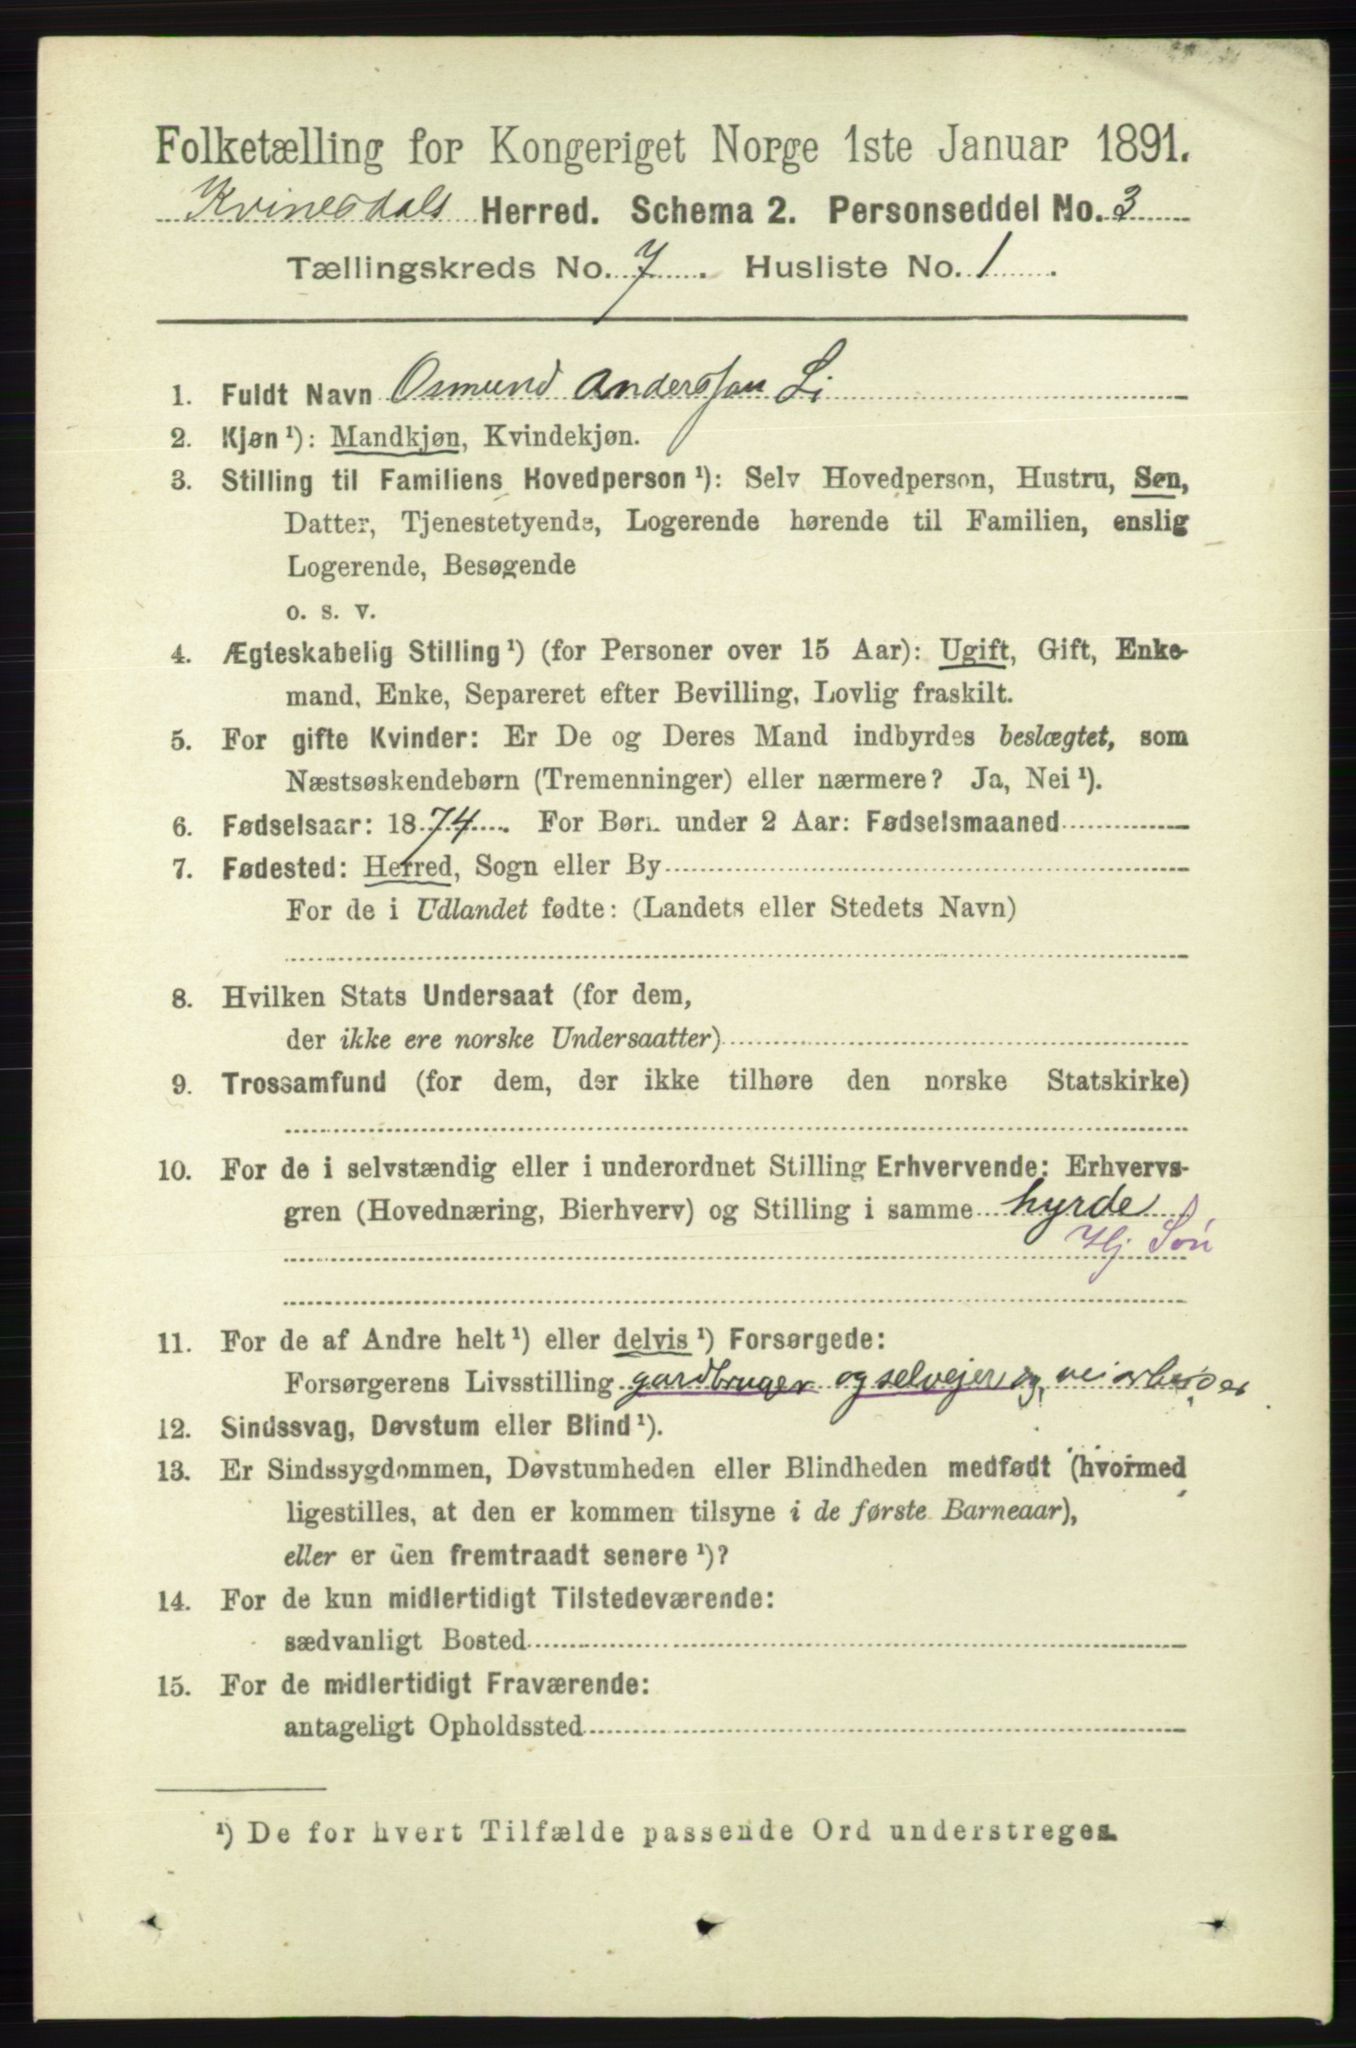 Folketælling for Kongeriget Norge 1ste Januar 1891.
Kvinesdals Herred. Schema 2. Personseddel No. 3
Tællingskreds No. 7. Husliste No. 1.
1. Fuldt Navn Osmund Anderssøn Li
2. Kjøn¹): Mandkjøn, Kvindekjøn.
3. Stilling til Familiens Hovedperson¹): Selv Hovedperson, Hustru, Søn,
Datter, Tjenestetyende, Logerende hørende til Familien, enslig
Logerende, Besøgende
o. s. v.
4. Ægteskabelig Stilling¹) (for Personer over 15 Aar): Ugift, Gift, Enke-
mand, Enke, Separeret efter Bevilling, Lovlig fraskilt.
5. For gifte Kvinder: Er De og Deres Mand indbyrdes beslægtet, som
Næstsøskendebørn (Tremenninger) eller nærmere? Ja, Nei¹).
6. Fødselsaar: 1874. For Børn under 2 Aar: Fødselsmaaned
7. Fødested: Herred, Sogn eller By
For de i Udlandet fødte: (Landets eller Stedets Navn)
8. Hvilken Stats Undersaat (for dem,
der ikke ere norske Undersaatter)
9. Trossamfund (for dem, der ikke tilhøre den norske Statskirke)
10. For de i selvstændig eller i underordnet Stilling Erhvervende: Erhvervs-
gren (Hovednæring, Bierhverv) og Stilling i samme hyrde
Hj Søn
11. For de af Andre helt¹) eller delvis¹) Forsørgede:
Forsørgerens Livsstilling gardbruger og selvejer og veiarbeider
12. Sindssvag, Døvstum eller Blind¹).
13. Er Sindssygdommen, Døvstumheden eller Blindheden medfødt (hvormed
ligestilles, at den er kommen tilsyne i de første Barneaar),
eller er den fremtraadt senere¹)?
14. For de kun midlertidigt Tilstedeværende:
sædvanligt Bosted
15. For de midlertidigt Fraværende:
antageligt Opholdssted
¹) De for hvert Tilfælde passende Ord understreges.